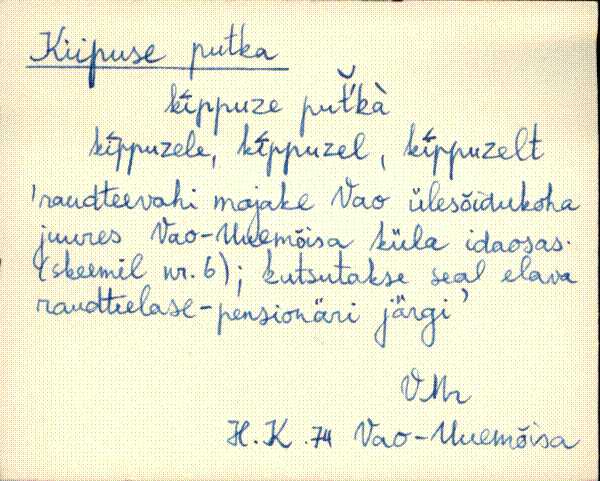 Kiipuse putka
kīppuze put̆'kà
kīppuzele, kīppuzel, kīppuzelt
'raudteevahi majake Vao ülesõidukoha
juures Vao-Uuemõisa küla idaosas.
(skeemil nr. 6); kutsutakse seal elava
raudteelase-pensionäri järgi'
VMr
H.K. 74 Vao-Uuemõisa